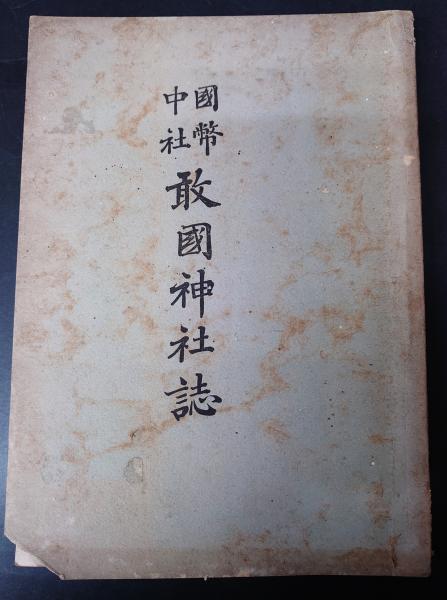 國幣
中社
敢國神社誌